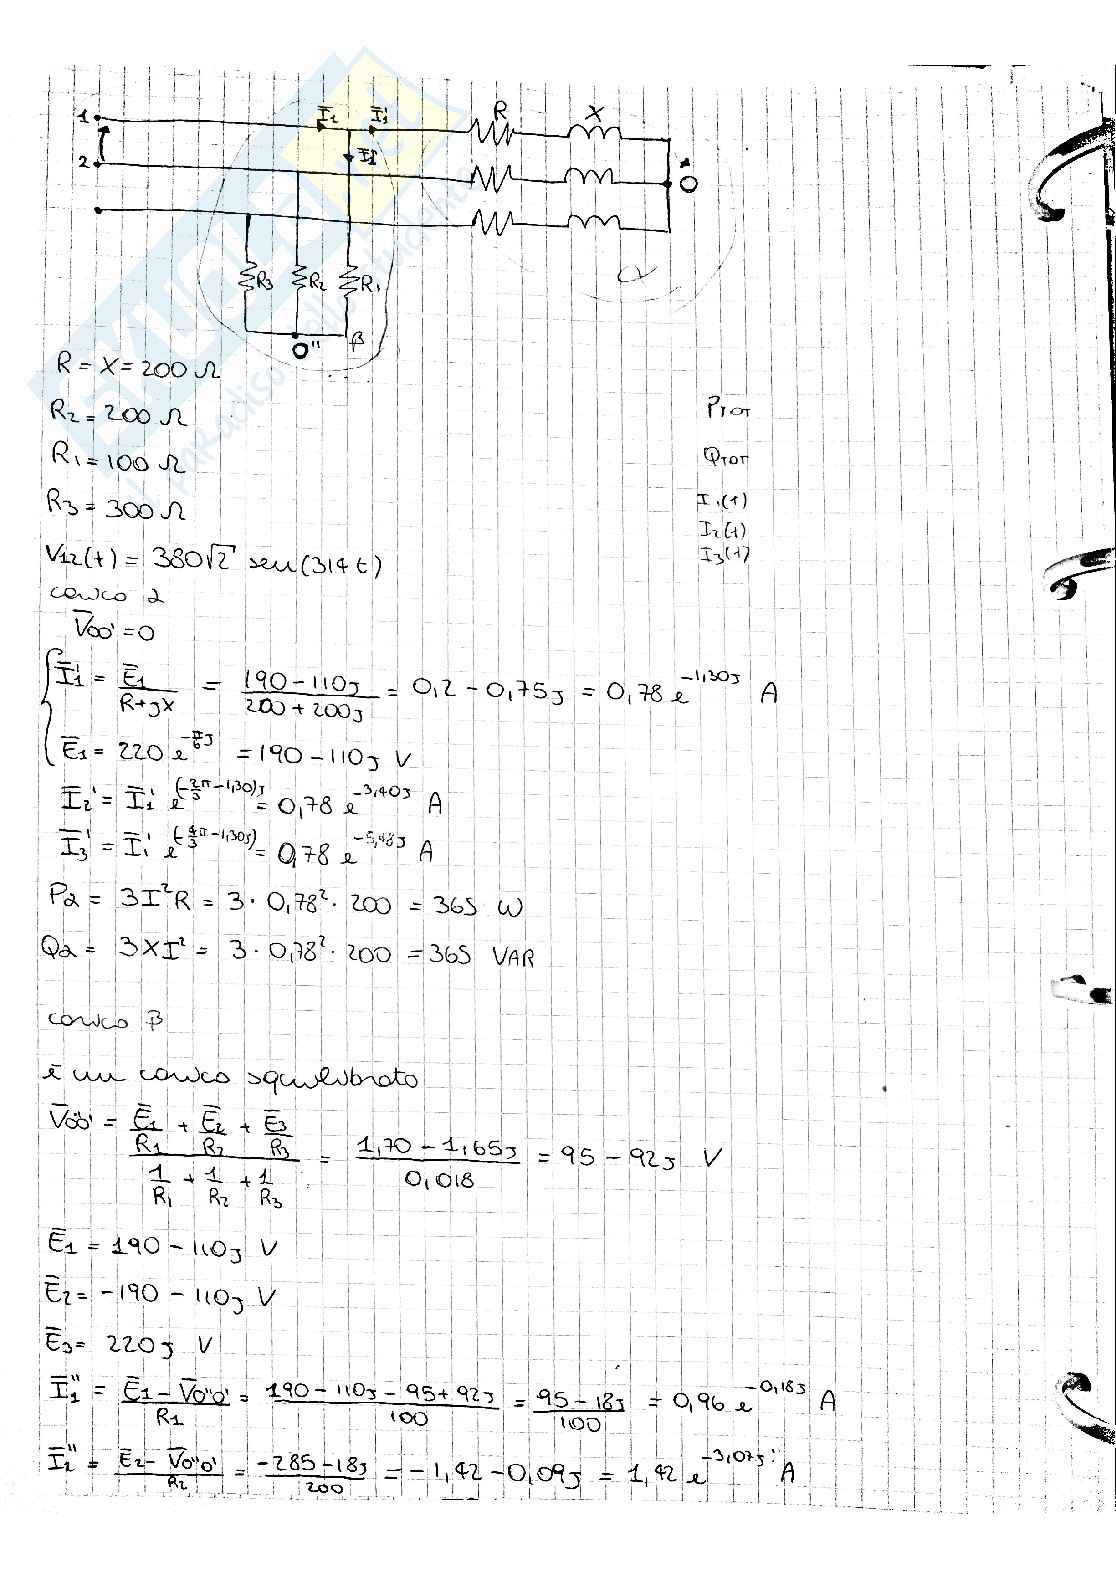 1 I̅₁ I̅₁' R X
2 I̅₁'' O'
R₃ R₂ R₁ α
O'' β
R = X = 200 Ω
R₂ = 200 Ω PTOT
R₁ = 100 Ω QTOT
R₃ = 300 Ω I₁(t)
I₂(t)
V₁₂(t) = 380√2 sen(314t) I₃(t)
carico α
V̅oo' = 0
I̅₁' = E̅₁/(R+jX) = (190-110j)/(200+200j) = 0,2 - 0,75j = 0,78 e^(-1,30j) A
E̅₁ = 220 e^(-π/6 j) = 190 - 110j V
I̅₂' = I̅₁' e^(-2/3π - 1,30)j = 0,78 e^(-3,40j) A
I̅₃' = I̅₁' e^(-4/3π - 1,30j) = 0,78 e^(-5,48j) A
Pα = 3I²R = 3 · 0,78² · 200 = 365 W
Qα = 3XI² = 3 · 0,78² · 200 = 365 VAR
carico β
è un carico squilibrato
V̅o''o' = (E̅₁/R₁ + E̅₂/R₂ + E̅₃/R₃)/(1/R₁ + 1/R₂ + 1/R₃) = (1,70 - 1,65j)/0,018 = 95 - 92j V
E̅₁ = 190 - 110j V
E̅₂ = -190 - 110j V
E̅₃ = 220j V
I̅₁'' = (E̅₁ - V̅o''o')/R₁ = (190 - 110j - 95 + 92j)/100 = (95 - 18j)/100 = 0,96 e^(-0,18j) A
I̅₂'' = (E̅₂ - V̅o''o')/R₂ = (-285 - 18j)/200 = -1,42 - 0,09j = 1,42 e^(-3,07j) A